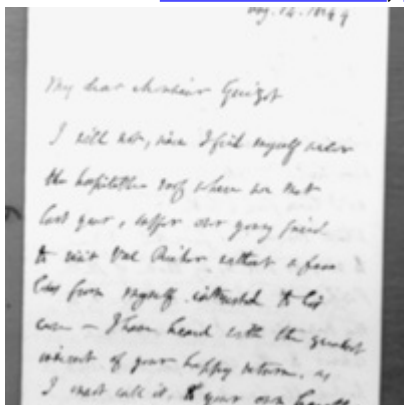 Aug. 14. 1849
My dear Monsieur Guizot
I will not, since I find myself under
the hospitable roof where we met
last year, suffer our young friend
to visit Val Richer without a few
lines from myself intrusted to his
care - I have heard with the greatest
interest of your happy return, as
I must call it, to your own